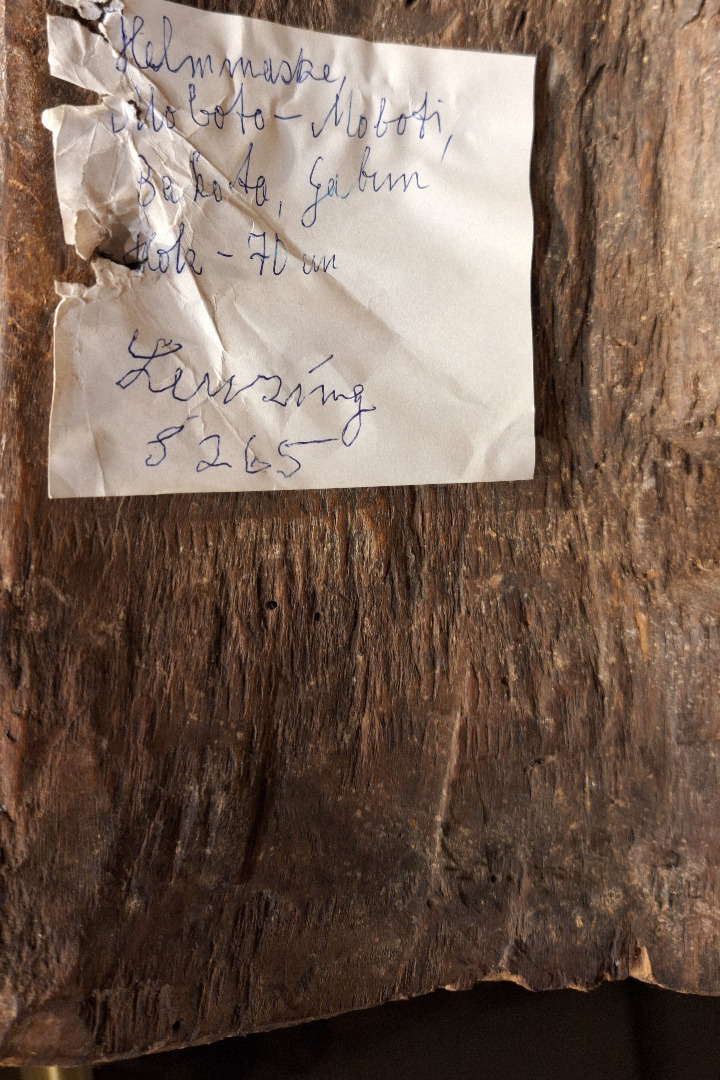 Helmmaske,
Moboto - Moboti,
Bakota, Gabun
Holz - 70 cm
Lenzing
5265